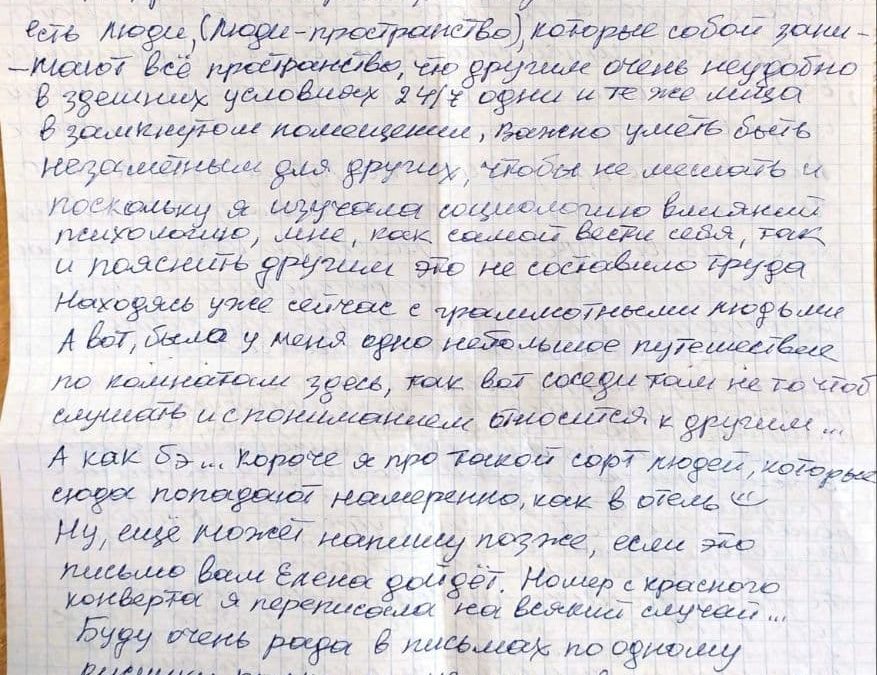 есть люди, (люди-пространство), которые собой зани-
-мают всё пространство, что другим очень неудобно
в здешних условиях 24/7 одни и те же лица
в замкнутом помещении, важно уметь быть
незаметным для других, чтобы не мешать и
поскольку я изучала социологию влияний
психологию, мне, как самой вести себя, так
и пояснить другим это не составило труда
Находясь уже сейчас с грамотными людьми
А вот, было у меня одно небольшое путешествие
по комнатам здесь, так вот соседи там не то чтоб
слушать и с пониманием относится к другим...
А как бэ... короче я про такой сорт людей, которые
сюда попадают намеренно, как в отель
Ну, ещё может напишу позже, если это
письмо вам Елена дойдёт. Номер с красного
конверта я переписала на всякий случай...
Буду очень рада в письмах по одному